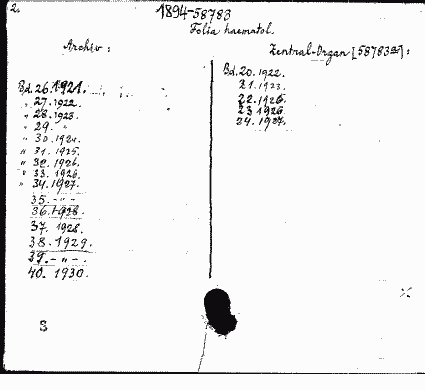 2.
1894-58783
Folia haematol.
Archiv:
Zentral-Organ [58783a]:
Bd. 26. 1921.
" 27. 1922.
" 28. 1923.
" 29. "
" 30. 1924.
" 31. 1925.
" 32. 1926.
" 33. 1926.
" 34. 1927.
35. - " -
36. 1928.
37. 1928.
38. 1929.
39. - " -.
40. 1930.
Bd. 20. 1922.
21. 1923.
22. 1925.
23 1926
24. 1927.
S